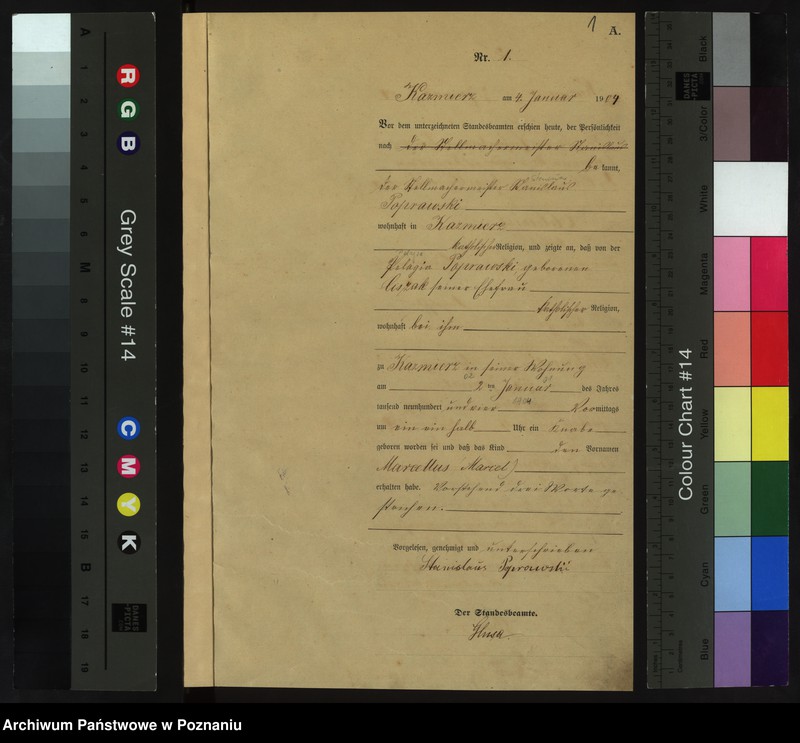 1
A.
Nr. 1.
Kazmierz am 4. Januar 1904
Vor dem unterzeichneten Standesbeamten erschien heute, der Persönlichkeit
nach der Stellmachermeister Stanislaus
bekannt,
der Stellmachermeister Stanislaus
Poprawski
wohnhaft in Kazmierz
katholischer Religion, und zeigte an, daß von der
Pelagia Poprawski geborenen
seiner Ehefrau
katholischer Religion,
wohnhaft bei ihm
zu Kazmierz in seiner Wohnung
am 2ten Januar des Jahres
tausend neunhundert und vier 1904 Vormittags
um ein ein halb Uhr ein Knabe
geboren worden sei und daß das Kind den Vornamen
Marcellus Marcel)
erhalten habe. Vorstehend drei Worte ge
strichen.
Vorgelesen, genehmigt und unterschrieben
Stanislaus Poprawski
Der Standesbeamte.
Grey Scale #14
A 1 2 3 4 5 6 M 8 9 10 11 12 13 14 15 B 17 18 19
R G B
C M Y K
DANES
PICTA
Colour Chart #14
Blue Cyan Green Yellow Red Magenta White 3/Color Black
DANES
PICTA
Archiwum Państwowe w Poznaniu